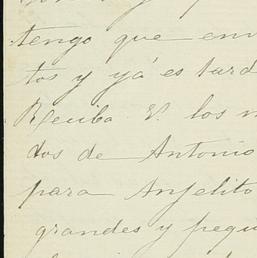 tengo que en
tos y ya es tard
Reciba V. los
dos de Antonio
para Anjelito
grandes y pequ